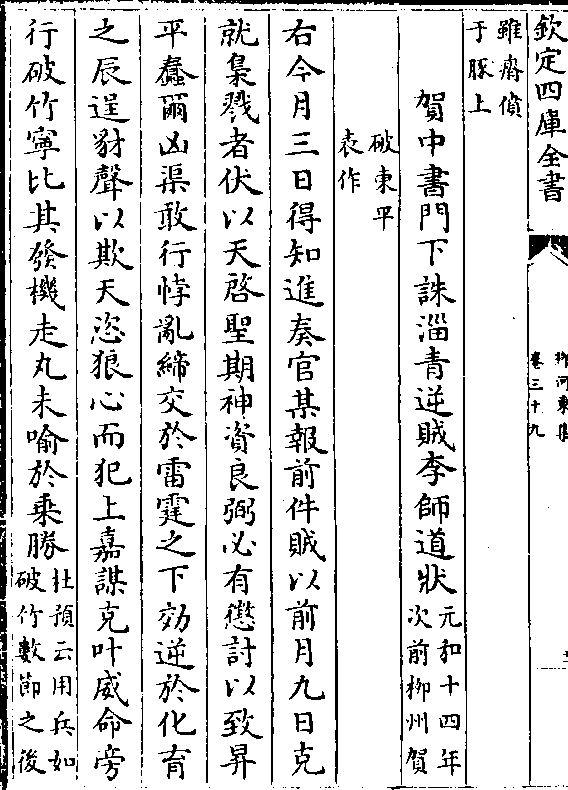 欽定四庫全書
柳河東集
卷三十九
雖齋偵
于豚上
賀中書門下誅淄青逆賊李師道狀元和十四年
次前柳州賀
破東平
表作
右今月三日得知進奏官某報前件賊以前月九日克
就梟戮者伏以天啓聖期神資良弼必有懲討以致昇
平蠢爾凶渠敢行悖亂締交於雷霆之下効逆於化育
之辰逞豺聲以欺天恣狼心而犯上嘉謀克叶威命旁
行破竹寧比其發機走丸未喻於乗勝杜預云用兵如
破竹數節之後